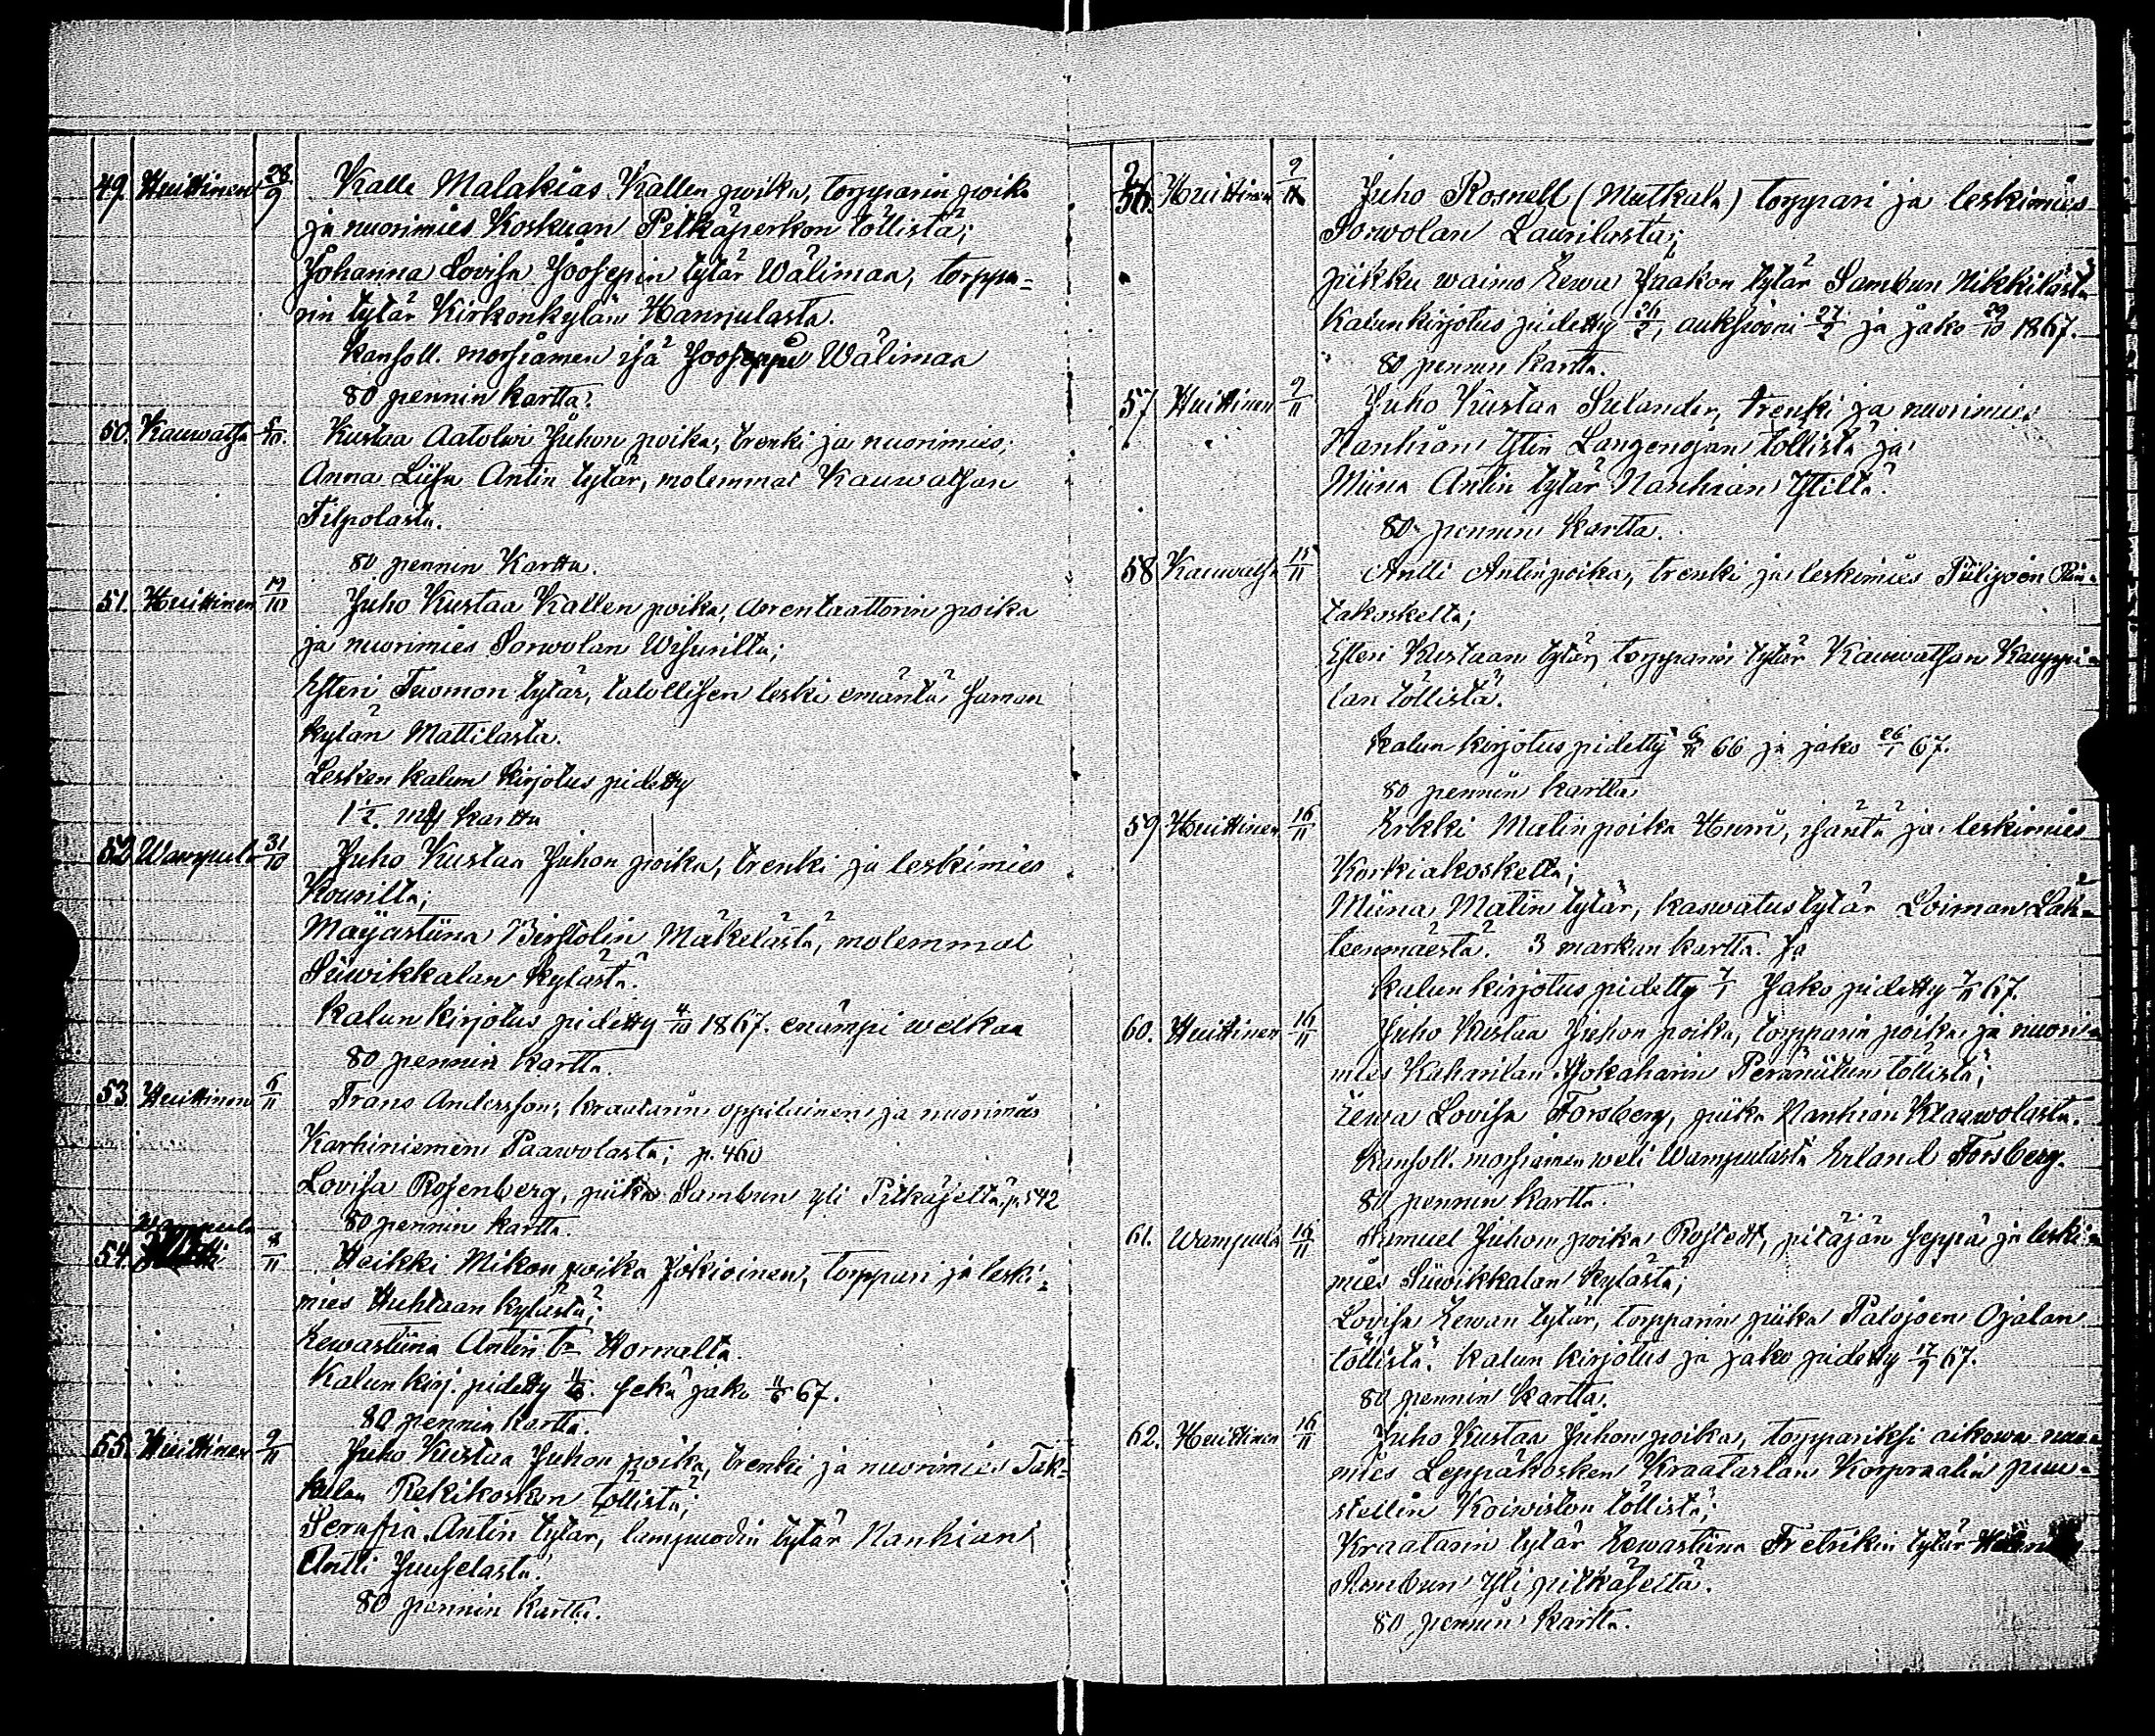 49. Huittinen 28/9 Kalle Malakias Kallen poika, torpparin poika
ja nuorimies Koskuan Pitkäperkon töllistä;
Johanna Lovisa Joosepin tytär Wälimaa, torppa-
rin tytär Kirkonkylän Hannulasta.
Konsoll. morsiamen isä Jooseppi Wälimaa
80 pennin kartta.
50. Kauwatsa 5/10. Kustaa Aatolwi Juhon poika, trenki ja nuorimies;
Anna Liisa Antin tytär, molemmat Kauwatsan
Filpolasta.
80 pennin Kartta.
51. Huittinen 19/10 Juho Kustaa Kallen poika, Arrentaattorin poika
ja nuorimies Sorwolan Wisurilta;
Esteri Tuomon tytär, talollisen leski emäntä saman
kylän Mattilasta.
Lesken kalun kirjotus pidetty
1 1/2 mk kartta
52 Wampula 31/10 Juho Kustaa Juhon poika, trenki ja leskimies
Kourilta;
Majastiina Birstolin Mäkelästä, molemmat
Siiwikkalan kylästä.
Kalun kirjotus pidetty 4/10 1867. enämpi welkaa
80 pennin kartta.
53. Huittinen 6/11 Frans Andersson, kraatarin oppilainen ja nuorimies
Karhiniemen Paawolasta; p. 460
Lovisa Rosenberg, piika Sambun yli Pitkäseltä, p. 542
80 pennin kartta.
Wampula
54. 8/11 Heikki Mikon poika Jokioinen, torppari ja leski-
mies Huhtaan kylästä;
Eewastiina Antin tr Hornalta.
Kalun kirj. pidetty 11/6. sekä jako 11/6 67.
80 pennin kartta.
55. Huittinen 9/11 Juho Kustaa Juhon poika, trenki ja nuorimies Tak-
kulan Rekikosken töllistä;
Serafia Antin tytär, lampuodin tytär Nanhian
Antti Juuselasta.
80 pennin Kartta.
56. Huittinen 9/11 Juho Rosnell (Mutkala) torppari ja leskimies
Sorwolan Laurilasta;
piikku waimo Eewa Jaakon tytär Sambun Nikkilästä
Kalunkirjotus pidetty 26/2, auksiooni 27/2 ja jako 29/10 1867.
80 pennin kartta.
57 Huittinen 9/11 Juho Kustaa Sulander, trenki ja nuorimies
Nanhian Ystin Langenojan töllistä ja
Miina Antin tytär Nanhian Ystiltä.
80 pennin kartta.
58 Kauwatsa 15/11 Antti Antin poika, trenki ja leskimies Piilijoen Rin-
takoskelta;
Esteri Kustaan tytär, torpparin tytär Kauwatsan Kauppi-
lan töllistä.
Kalun kirjotus pidetty 66 ja jako 26/1 67.
80 pennin kartta
59 Huittinen 16/11 Erkki Matin poika Humi, isäntä ja leskimies
Korkiakoskelta;
Miina Matin tytär, kaswatus tytär Loiman Läh-
teenmäestä. 3 markan kartta. Ja
Kalun kirjotus pidetty 7/1 Jako pidetty 7/11 67.
60. Huittinen 16/11 Juho Kustaa Juhon poika, torpparin poika ja nuori-
mies Kaharilan Yokaharin Peräniitun töllistä;
Eewa Lovisa Forsberg, piika Nanhian Klaawolasta.
Konsoll. morsiamen weli Wampulasta Erland Forsberg.
80 pennin kartta.
61. Wampula 16/11 Samuel Juhon poika Rostedt, pitäjän seppä ja leski-
mies Siiwikkalan kylästä;
Lovisa Eewan tytär, torpparin piika Palojoen Ojalan
töllistä. Kalun kirjotus ja jako pidetty 17/9 67.
80 pennin kartta.
62. Huittinen 16/11 Juho Kustaa Juhon poika, torppariksi aikowa nuori-
mies Leppäkosken Kraatarlan Korpraalin puu-
stellin Koiwiston töllistä;
Kraatarin tytär Eewastiina Fretrikin tytär
Sambun Yli pitkäseltä.
80 pennin kartta.